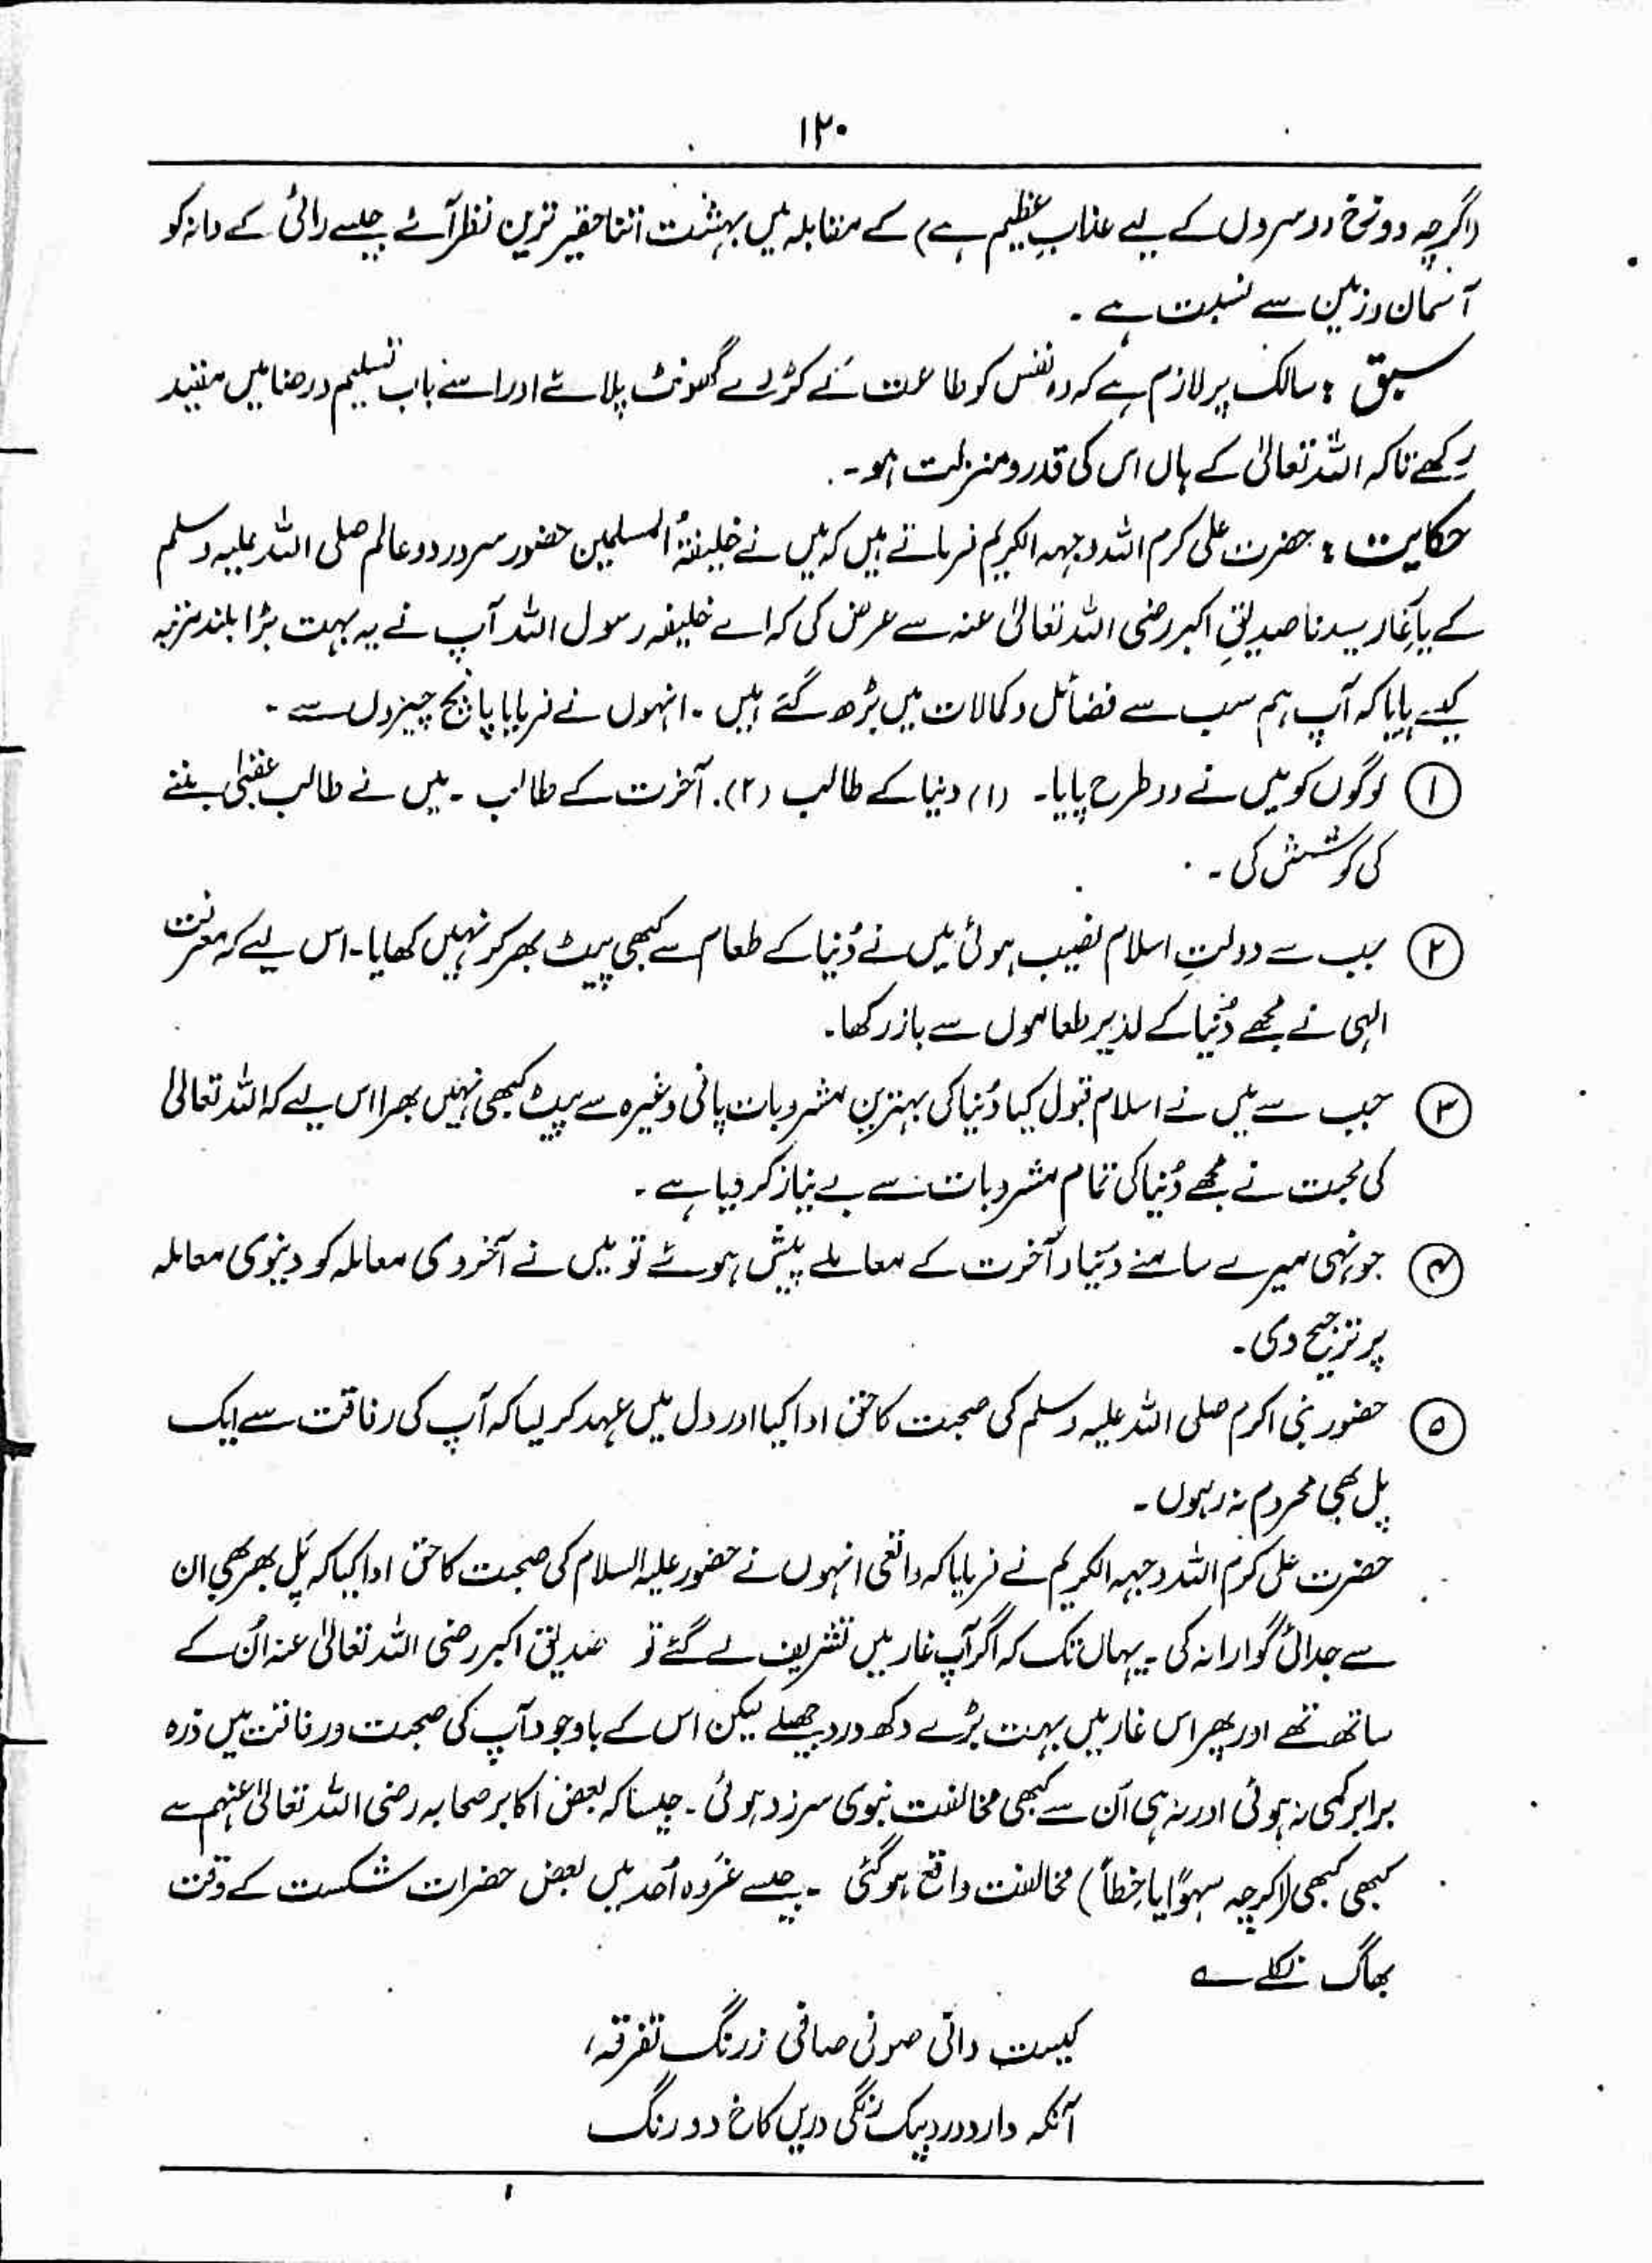 ۱۲۰
(اگرچہ دوزخ دوسروں کے لیے عذابِ عظیم ہے) کے مقابلہ میں بہشت اتنا حقیر ترین نظر آئے جیسے رائی کے دانہ کو
آسمان و زمین سے نسبت ہے ۔
سبق : سالک پر لازم ہے کہ وہ نفس کو طاعت کے کڑوے گھونٹ پلائے اور اسے باب تسلیم و رضا میں مقید
رکھے تاکہ اللہ تعالیٰ کے ہاں اس کی قدر و منزلت ہو ۔
حکایت : حضرت علی کرم اللہ وجہہ الکریم فرماتے ہیں کہ میں نے خلیفۃُ المسلمین حضور سرور دو عالم صلی اللہ علیہ وسلم
کے یارِ غار سیدنا صدیقِ اکبر رضی اللہ تعالیٰ عنہ سے عرض کی کہ اے خلیفہ رسول اللہ آپ نے یہ بہت بڑا بلند مرتبہ
کیسے پایا کہ آپ ہم سب سے فضائل و کمالات میں بڑھ گئے ہیں ۔ انہوں نے فرمایا پانچ چیزوں سے ۔
① لوگوں کو میں نے دو طرح پایا ۔ (۱) دنیا کے طالب (۲) آخرت کے طالب ۔ میں نے طالب عقبیٰ بننے
کی کوشش کی ۔
② جب سے دولتِ اسلام نصیب ہوئی میں نے دُنیا کے طعام سے کبھی پیٹ بھر کر نہیں کھایا ۔ اس لیے کہ معرفت
الٰہی نے مجھے دُنیا کے لذیذ طعاموں سے باز رکھا ۔
③ جب سے میں نے اسلام قبول کیا دُنیا کی بہترین مشروبات پانی وغیرہ سے پیٹ کبھی نہیں بھرا اس لیے کہ اللہ تعالیٰ
کی محبت نے مجھے دُنیا کی تمام مشروبات سے بے نیاز کر دیا ہے ۔
④ جونہی میرے سامنے دُنیا و آخرت کے معاملے پیش ہوئے تو میں نے آخروی معاملہ کو دینوی معاملہ
پر ترجیح دی ۔
⑤ حضور نبی اکرم صلی اللہ علیہ وسلم کی صحبت کا حق ادا کیا اور دل میں عہد کر لیا کہ آپ کی رفاقت سے ایک
پل بھی محروم نہ رہوں ۔
حضرت علی کرم اللہ وجہہ الکریم نے فرمایا کہ واقعی انہوں نے حضور علیہ السلام کی صحبت کا حق ادا کیا کہ پَل بھر بھی ان
سے جدائی گوارا نہ کی ۔ یہاں تک کہ اگر آپ غار میں تشریف لے گئے تو صدیق اکبر رضی اللہ تعالیٰ عنہ اُن کے
ساتھ تھے اور پھر اس غار میں بہت بڑے دکھ درد جھیلے لیکن اس کے باوجود آپ کی صحبت و رفاقت میں ذرہ
برابر کمی نہ ہوئی اور نہ ہی اُن سے کبھی مخالفت نبوی سرزد ہوئی ۔ جیسا کہ بعض اکابر صحابہ رضی اللہ تعالیٰ عنہم سے
کبھی کبھی (اگرچہ سہوًا یا خطأً) مخالفت واقع ہو گئی ۔ جیسے غزوہ اُحد میں بعض حضرات شکست کے وقت
بھاگ نکلے ؎
کیست دانی صوفی صافی ز رنگ تفرقہ ،
آنکہ دارد رو بیک رنگی دریں کاخ دو رنگ